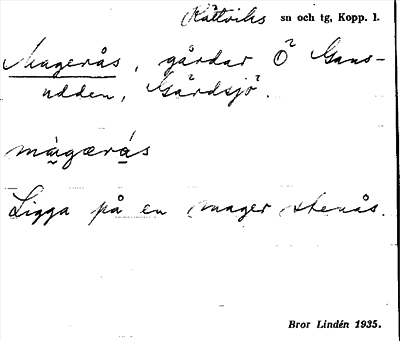 Rättviks sn och tg, Kopp. l.
Magerås, gårdar Ö² Gans-
udden, Gårdsjö².
màgærás
Ligga på en mager stenås.
Bror Lindén 1935.